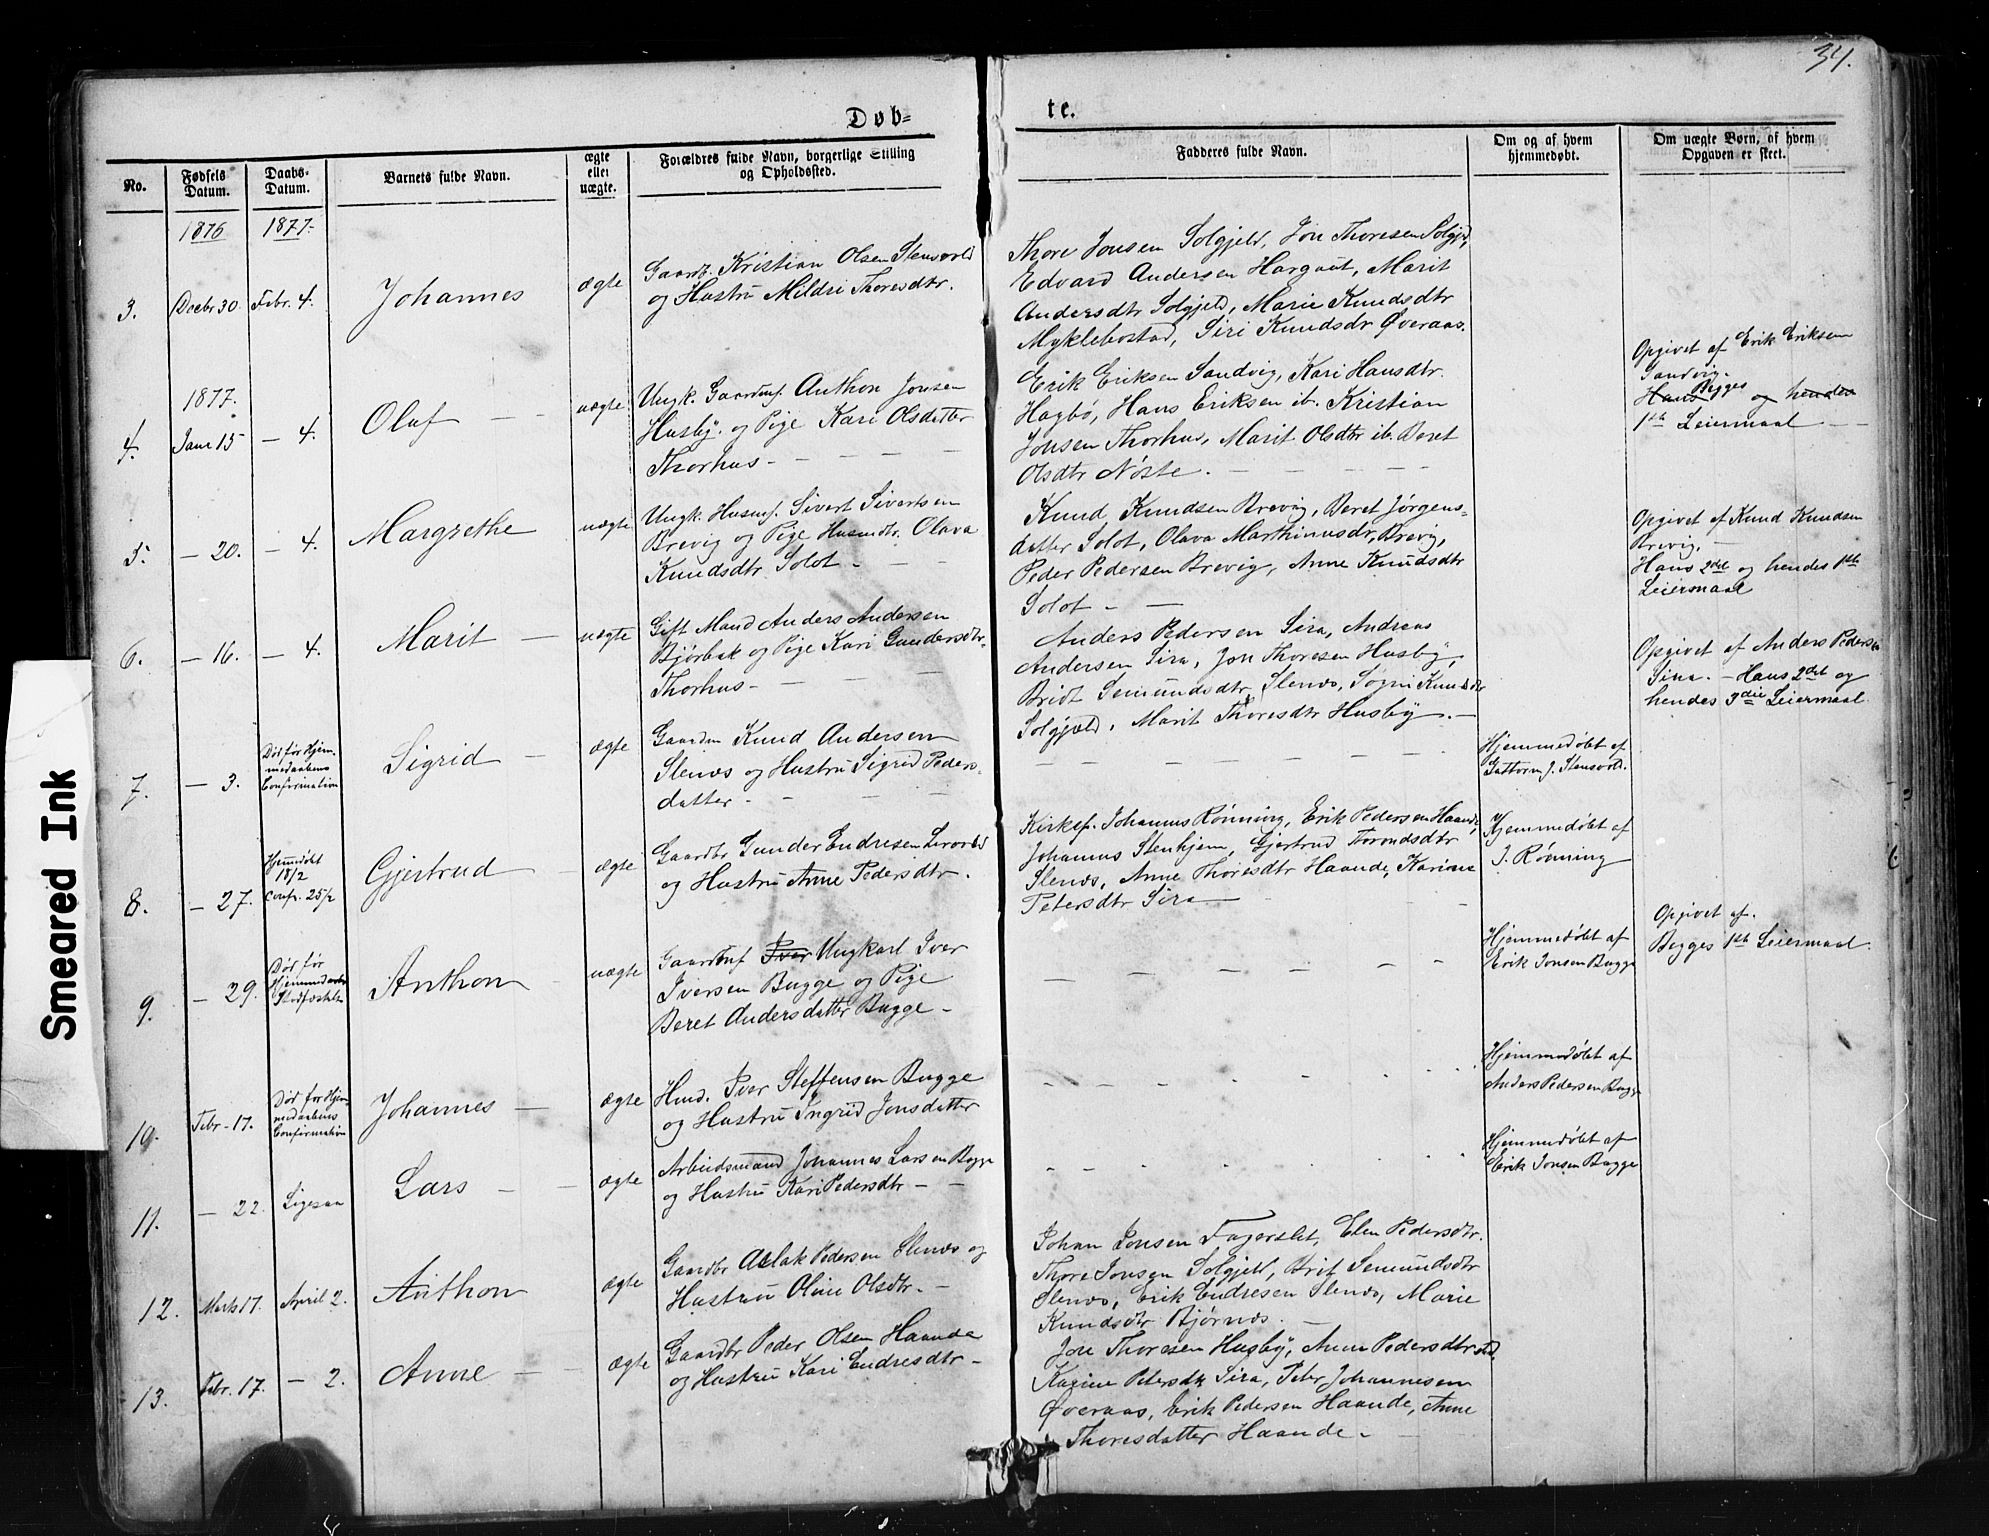 34.
Døb=
te.
No.
Fødsels Datum.
Daabs-Datum.
Barnets fulde Navn.
ægte eller uægte.
Forældres fulde Navn, borgerlige Stilling og Opholdssted.
Fadderes fulde Navn.
Om og af hvem hjemmedøbt.
Om uægte Børn, af hvem Opgaven er skeet.
1876 1877.
3. Decbr 30. Febr. 4. Johannes ægte
Gaardb. Kristian Olsen Stensvold
og Hustru Mildri Thoresdtr.
Thore Jonsen Solgjeld, Jon Thoresen Solgjd,
Edvard Andersen Hargaut, Marit
Andersdtr Solgjeld, Marie Knudsdtr
Myklebostad, Siri Knudsdr Øveraas.
1877.
4. Janr 15 — 4. Olaf — uægte
Ungk. Gaardmf. Anthon Jonsen
Husby. og Pige Kari Olsdatter
Thorhus —
Erik Eriksen Sandvig, Kari Hansdtr.
Hagbø, Hans Eriksen ib. Kristian
Jonsen Thorhus, Marit Olsdtr ib. Beret
Olsdtr Nøste.
Opgivet af Erik Eriksen
Sandvig.
Hans Begges og hendes
1ste Leiermaal
5. — 20. — 4. Margrethe uægte
Ungk. Husmf. Sivert Sivertsen
Brevig og Pige Husmdtr. Olava
Knudsdtr Solot —
Knud Knudsen Brevig, Beret Jørgens-
datter Solot, Olava Marthinusdr, Brevig,
Peder Pedersen Brevig, Anne Knudsdtr
Solot —
Opgivet af Knud Knudsen
Brevig. —
Hans 2det og hendes 1ste
Leiermaal
6. — 16. — 4. Marit — uægte
Gift Mand Anders Andersen
Bjørbak og Pige Kari Gundersdtr.
Thorhus —
Anders Pedersen Sira, Andreas
Andersen Sira, Jon Thoresen Husby,
Bridt Semundsdtr Slenæs, Sogni Knudsdtr
Solgjeld, Marit Thoresdtr Husby. —
Opgivet af Anders Pedersen
Sira. — Hans 2det og
hendes 3die Leiermaal
7. — 3. Død før Hjem-
medaabens
Confirmation
Sigrid — ægte
Gaardm Knud Andersen
Slenæs og Hustru Sigrid Peders-
datter —
Hjemmedøbt af
Guttorm J. Stensvold.
8. — 27. Hjemdøbt
18/2
Conf. 25/2
Gjertrud — ægte
Gaardbr Gunder Endresen
og Hustru Anne Pedersdtr.
Kirkesf. Johannes Rønning, Erik Pedersen Haande,
Johannes Stenhjem, Gjertrud Trondsdtr
Slenæs, Anne Thoresdtr Haande, Karine
Petersdtr Sira —
Hjemmedøbt af
J. Rønning
9. — 29. Død før
Anthon — uægte
Iver Ungkarl Iver
Iversen Bugge og Pige
Beret Andersdatter Bugge —
Hjemmedøbt af
Erik Jonsen Bugge
Opgivet af.
Begges 1ste Leiermaal.
10. Febr. 17. Død før Hjem-
medaabens
Confirmation
Johannes — ægte
Husd. Iver Steffensen Bugge
og Hustru Ingrid Jonsdatter
Hjemmedøbt af
Anders Pedersen Bugge
11. — 22. Ligesaa Lars — ægte
Arbeidsmand Johannes Larsen Bugge
og Hustru Kari Pedersdtr —
Hjemmedøbt af
Erik Jonsen Bugge
12. Marts 17. April 2. Anthon ægte
Gaardbr Aslak Pedersen Slenæs og
Hustru Oline Olsdtr. —
Johan Jonsen Fagerslet, Elen Pedersdtr.
Thore Jonsen Solgjeld, Brit Semundsdtr
Slenæs, Erik Endresen Slenæs, Marie
Knudsdtr Bjørnæs. —
13. Febr. 17. — 2. Anne — ægte
Gaardbr Peder Olsen Haande
og Hustru Kari Endresdtr —
Jon Thoresen Husby, Anne Pedersdtr
Karine Petersdtr Sira, Peter Johannesen
Øveraas, Erik Pedersen Haande, Anne
Thoresdatter Haande. —
Smeared Ink